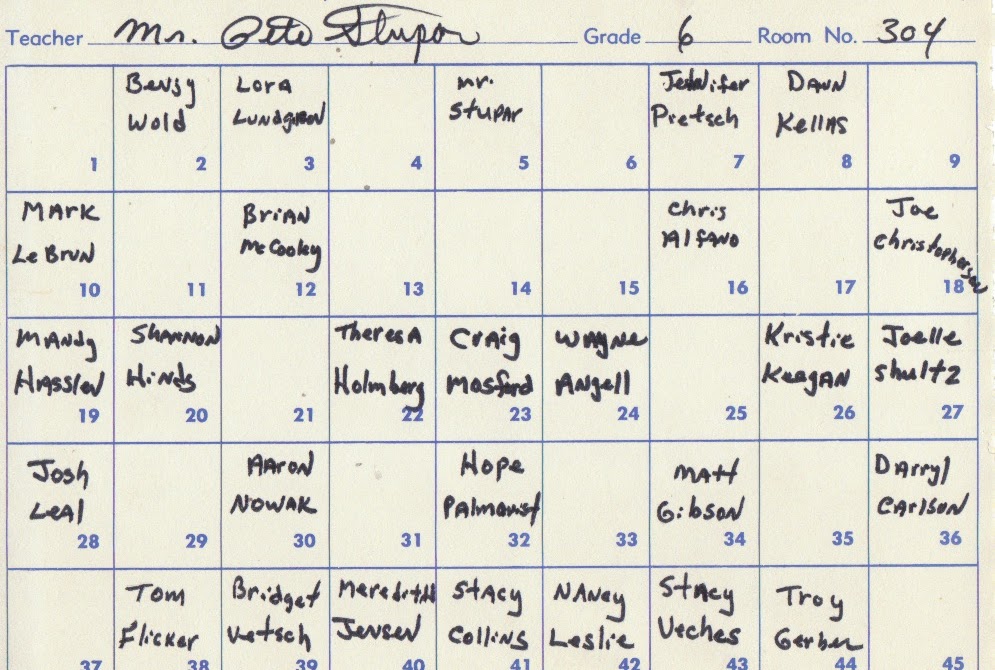 Teacher Mr. Pete Stupar Grade 6 Room No. 304
Bensy Lora mr. Jennifer Dawn
Wold Lundgren Stupar Pretsch Kellas
1 2 3 4 5 6 7 8 9
Mark Brian Chris Joe
LeBrun McCooley Alfano Christopherson
10 11 12 13 14 15 16 17 18
Mandy Shannon Theresa Craig Wagne Kristie Joelle
Hasslen Hinds Holmberg Mosford Angell Keegan Shultz
19 20 21 22 23 24 25 26 27
Josh Aaron Hope Matt Darryl
Leal Nowak Palmquist Gibson Carlson
28 29 30 31 32 33 34 35 36
Tom Bridget Meredith Stacy Nancy Stacy Troy
Flicker Vetsch Jensen Collins Leslie Veches Gerber
37 38 39 40 41 42 43 44 45